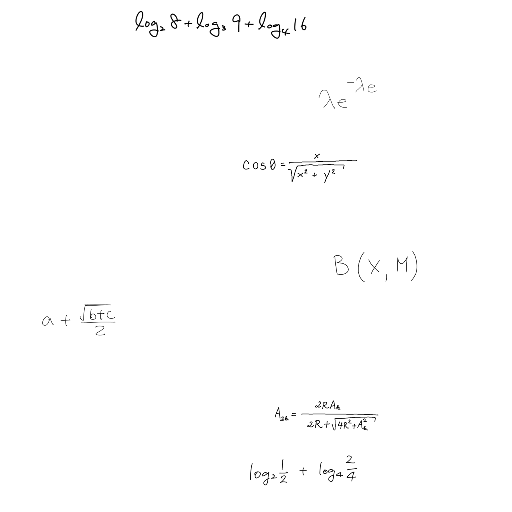 log₂ 8 + log₃ 9 + log₄ 16
λe^{-λe}
cos θ = \frac{x}{\sqrt{x² + y²}}
B (X, M)
a + \frac{\sqrt{b+c}}{2}
A_{2k} = \frac{2RA_k}{2R+\sqrt{4R²+A_k²}}
log₂ \frac{1}{2} + log₄ \frac{2}{4}